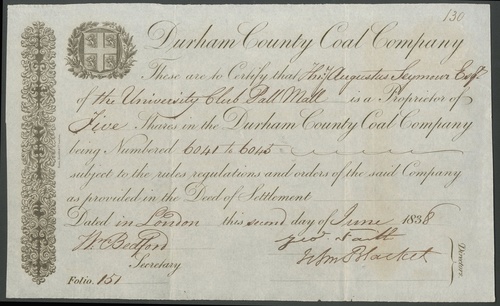 130
Durham County Coal Company
These are to Certify that Thos. Augustus Seymour Esqr.
of the University Club Pall Mall is a Proprietor of
Five Shares in the Durham County Coal Company
being Numbered 6041 to 6045
subject to the rules regulations and orders of the said Company
as provided in the Deed of Settlement
Dated in London this second day of June 1838
Wm Bedford
Secretary
Wm Blacket
Directors
Folio. 151